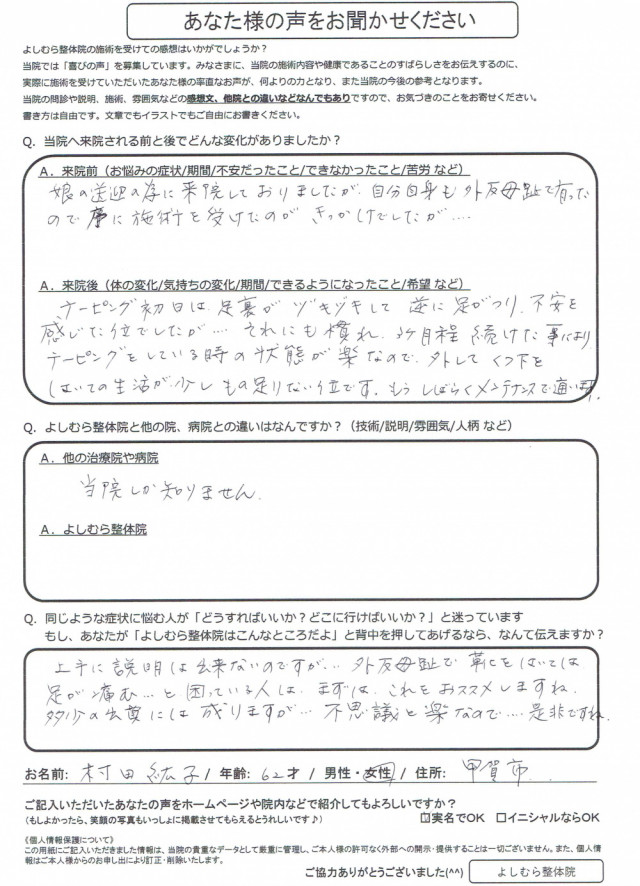 あなた様の声をお聞かせください
よしむら整体院の施術を受けての感想はいかがでしょうか?
当院では「喜びの声」を募集しています。みなさまに、当院の施術内容や健康であることのすばらしさをお伝えするのに、
実際に施術を受けていただいたあなた様の率直なお声が、何よりの力となり、また当院の今後の参考となります。
当院の問診や説明、施術、雰囲気などの感想文、他院との違いなどなんでもありですので、お気づきのことをお寄せください。
書き方は自由です。文章でもイラストでもご自由にお書きください。
Q. 当院へ来院される前と後でどんな変化がありましたか?
A. 来院前(お悩みの症状/期間/不安だったこと/できなかったこと/苦労 など)
娘の送迎の為に来院しておりましたが、自分自身も外反母趾で有った
ので 序に施術を受けたのが きっかけでしたが‥‥
A. 来院後(体の変化/気持ちの変化/期間/できるようになったこと/希望 など)
テーピング初日は、足裏が ヅキヅキして 逆に足がつり、不安を
感じた位でしたが‥‥ それにも慣れ、3ヶ月程 続けた事により
テーピングをしている時の状態が楽なので、外して くつ下を
はいての生活が少し もの足りない位です。もう しばらくメンテナンスで通います。
Q. よしむら整体院と他の院、病院との違いはなんですか?(技術/説明/雰囲気/人柄 など)
A. 他の治療院や病院
当院しか知りません。
A. よしむら整体院
Q. 同じような症状に悩む人が「どうすればいいか?どこに行けばいいか?」と迷っています
もし、あなたが「よしむら整体院はこんなところだよ」と背中を押してあげるなら、なんて伝えますか?
上手に説明は出来ないのですが‥‥ 外反母趾で 靴をはいては
足が痛む‥‥と困っている人は、まずは、これをおススメしますね。
多少の出費には成りますが‥‥ 不思議と楽なので‥‥是非ですね。
お名前: 村田紘子 / 年齢: 62才 / 男性・女性 / 住所: 甲賀市
ご記入いただいたあなたの声をホームページや院内などで紹介してもよろしいですか?
(もしよかったら、笑顔の写真もいっしょに掲載させてもらえるとうれしいです♪) ☑実名でOK □イニシャルならOK
《個人情報保護について》
この用紙にご記入いただきました情報は、当院の貴重なデータとして厳重に管理し、ご本人様の許可なく外部への開示・提供することは一切ございません。また、個人情
報はご本人様からのお申し出により訂正・削除いたします。
ご協力ありがとうございました(^^) よしむら整体院